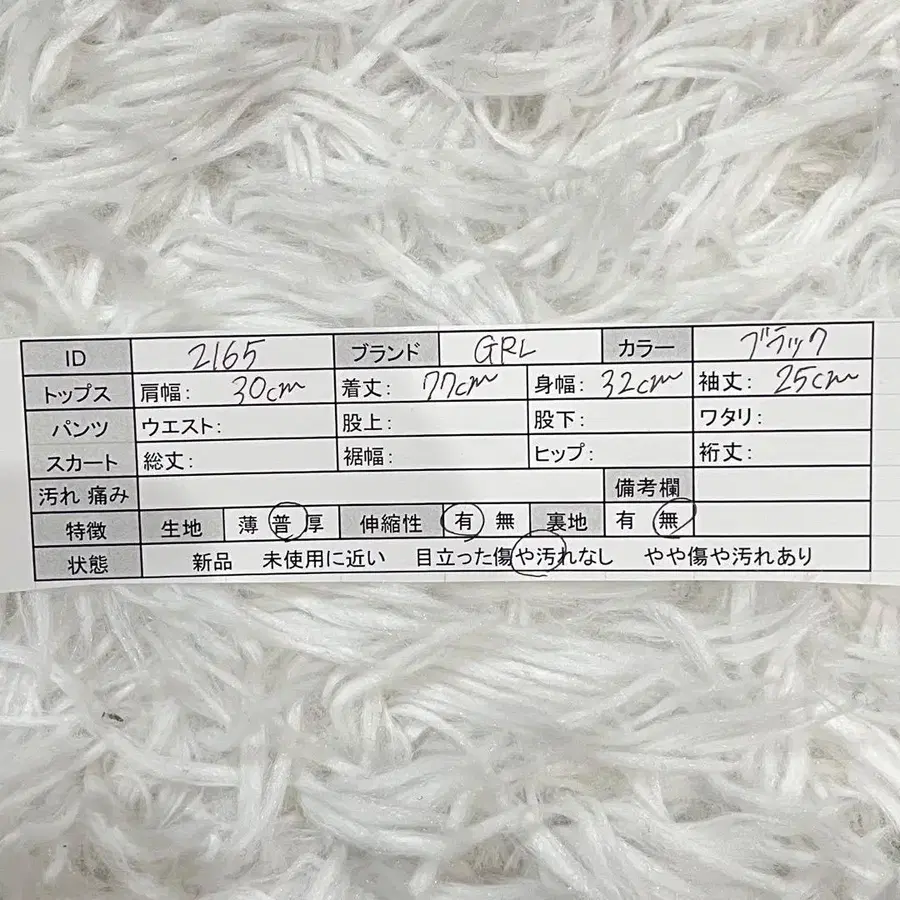 ID 2165 ブランド GRL カラー ブラック
トップス 肩幅: 30cm 着丈: 77cm 身幅: 32cm 袖丈: 25cm
パンツ ウエスト: 股上: 股下: ワタリ:
スカート 総丈: 裾幅: ヒップ: 裄丈:
汚れ 痛み 備考欄
特徴 生地 薄 普 厚 伸縮性 有 無 裏地 有 無
状態 新品 未使用に近い 目立った傷や汚れなし やや傷や汚れあり